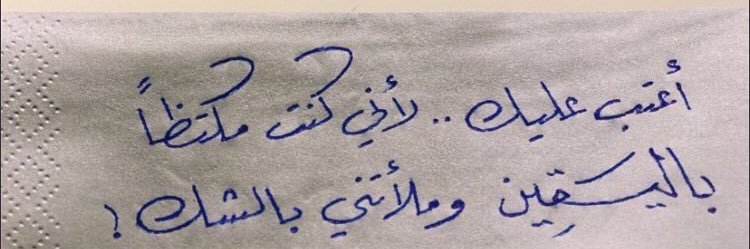 أعتب عليك .. لأني كنت مكتظاً
باليقين وملأتني بالشك !